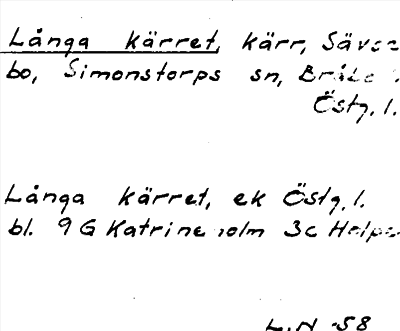 Långa kärret, kärr, Sävsz
bo, Simonstorps sn, Bråbo
Östg. l.
Långa kärret, ek Östg. l.
bl. 9G Katrineholm 3c Helpe
L.N -58